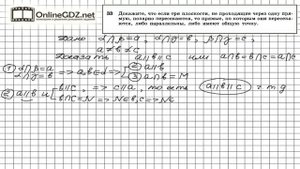 OnlineGDZ.net
33 Докажите, что если три плоскости, не проходящие через одну пря-
мую, попарно пересекаются, то прямые, по которым они пересека-
ются, либо параллельны, либо имеют общую точку.
Дано α∩β=a, α∩γ=b, β∩γ=c,
a≠b≠c
Доказать a∥b∥c или a∩b=b∩c=a∩c
① α∩β=a
α∩γ=b
=> a,b∈α =>
② a∥b
③ a∩b=M
② a∥b и
b∥c, => c∥a, то есть a∥b∥c ч т д
b∩c=N => N∈b,c => N∈